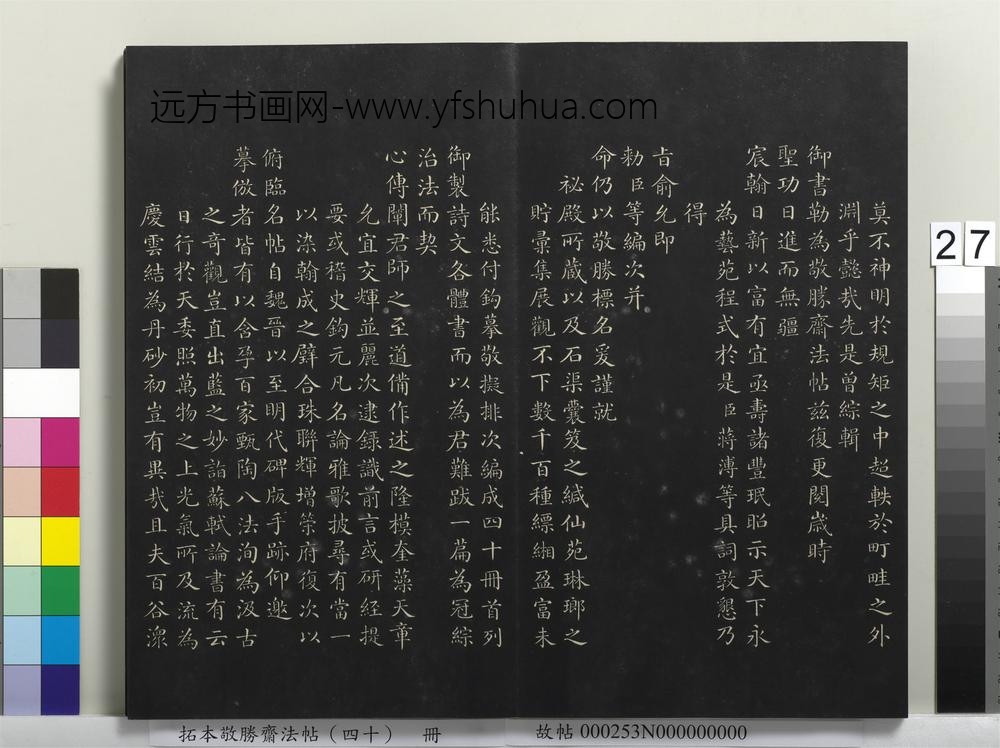 远方书画网-www.yfshuhua.com
莫不神明於規矩之中超軼於町畦之外
淵乎懿㢤先是曽綜輯
御書勒為敬勝齋法帖兹復更閱歳時
聖功日進而無疆
宸翰日新以富有宜亟壽諸豐珉昭示天下永
為藝苑程式於是臣蔣溥等具詞敦懇乃
得
㫖俞允即
勅臣等編次并
命仍以敬勝標名爰謹就
祕殿所藏以及石渠囊笈之緘仙苑琳瑯之
貯彚集展觀不下数千百種縹緗盈富未
能悉付鈎摹敬擬排次編成四十冊首列
御製詩文各體書而以為君難跋一篇為冠綜
治法而契
心傳闡君師之至道備作述之隆模奎藻天章
允宜交輝並麗次逮錄識前言或研経提
要或稽史鈎元凡名論雅歌披尋有當一
以染翰成之璧合珠聯輝増策府復次以
俯臨名帖自魏晉以至明代碑版手跡仰邀
摹倣者皆有以含孕百家甄陶八法洵為汲古
之奇觀豈直出藍之妙詣蘇軾論書有云
日行於天委照萬物之上光氣所及流為
慶雲結為丹砂初豈有異㢤且夫百谷潨
27
拓本敬勝齋法帖（四十） 冊
故帖 000253N000000000